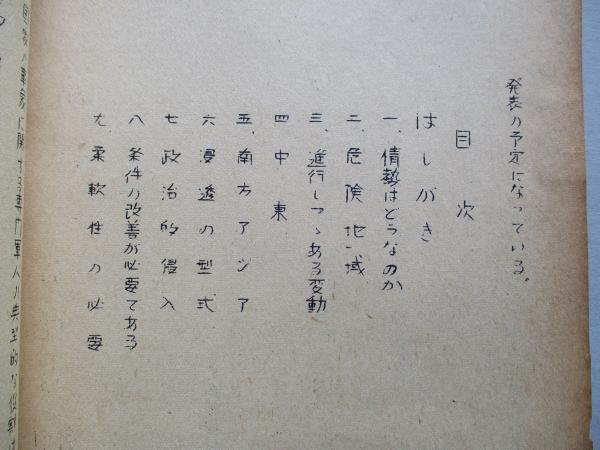 発表の予定になっている。
目次
はしがき
一、情勢はどうなのか
二、危険地域
三、進行しつゝある変動
四中東
五、南方アジア
六浸透の型式
七政治的侵入
八条件の改善が必要である
九柔軟性の必要